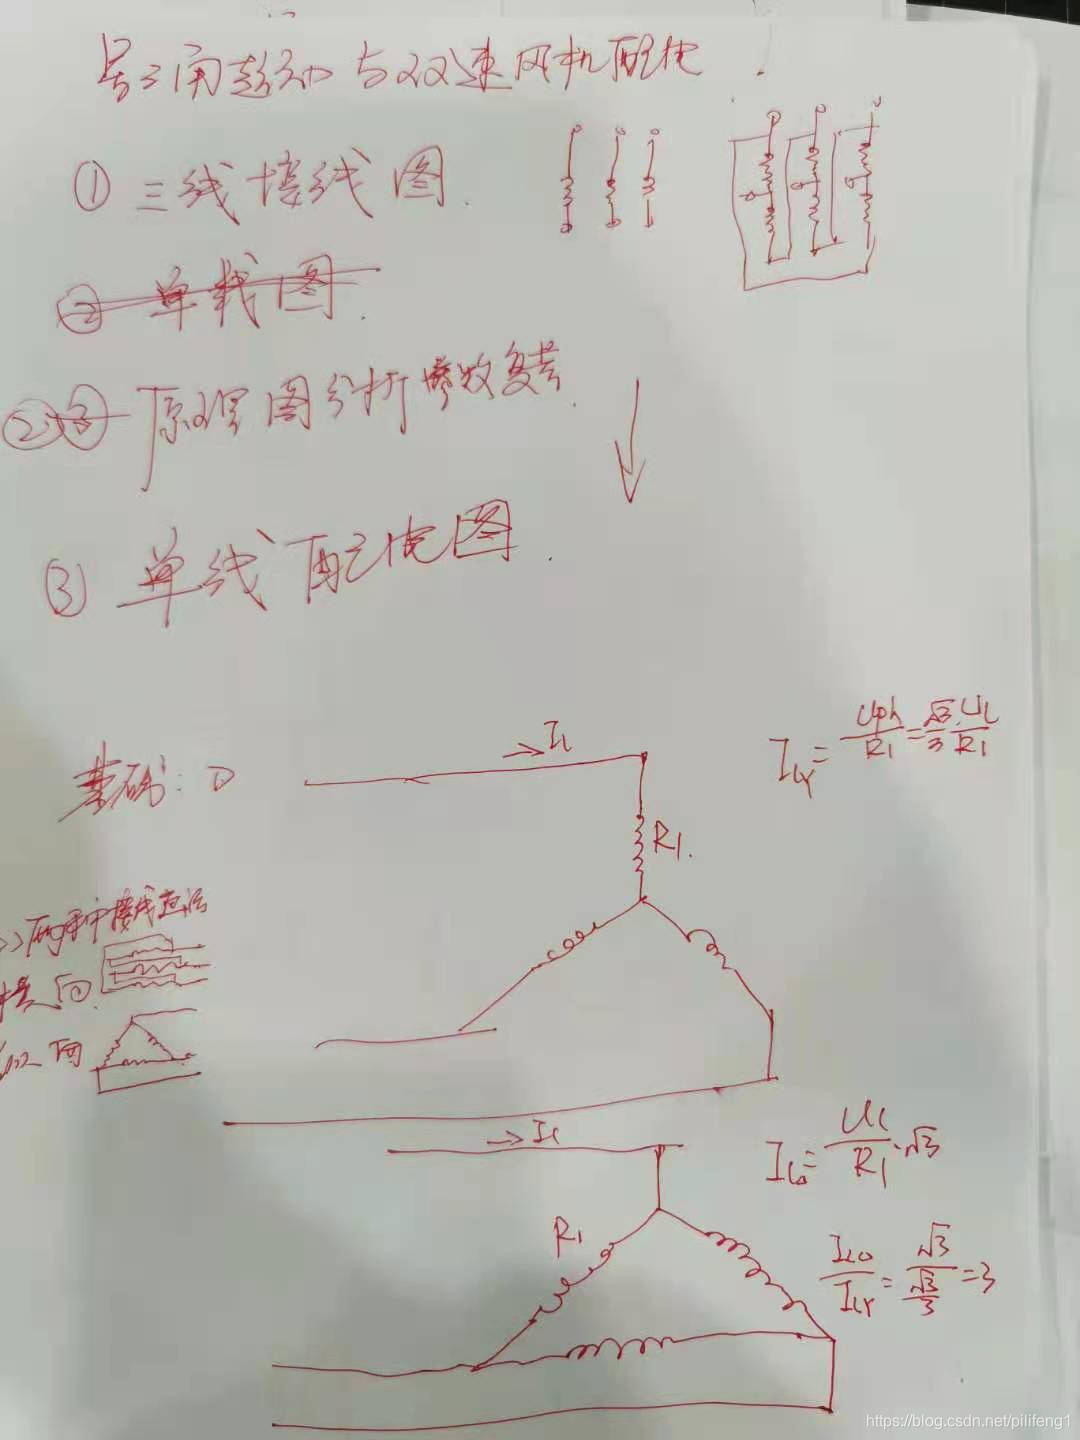 星三角起动与双速风机配电.
① 三线接线图.
② 单线图.
② ③ 原理图分析 参数
③ 单线配电图.
基础: ①
I_L
R1.
I_LY = Uph/R1 = √3/3 · UL/R1
两种接线
I_L
R1
I_L△ = UL/R1 · √3
I_L△/I_LY = √3/(√3/3) = 3
https://blog.csdn.net/pilifeng1